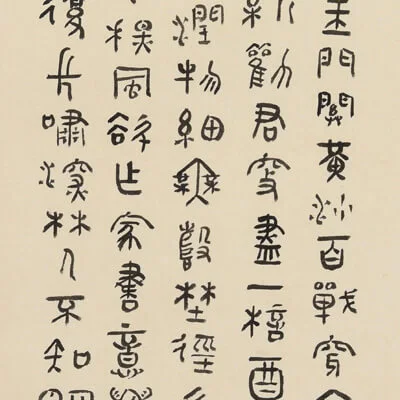 玉門關黃沙百戰穿金
新勸君更盡一桮酒
潤物細無聲埜徑
秋風欲乍家書意萬
復長嘯深林人不知明